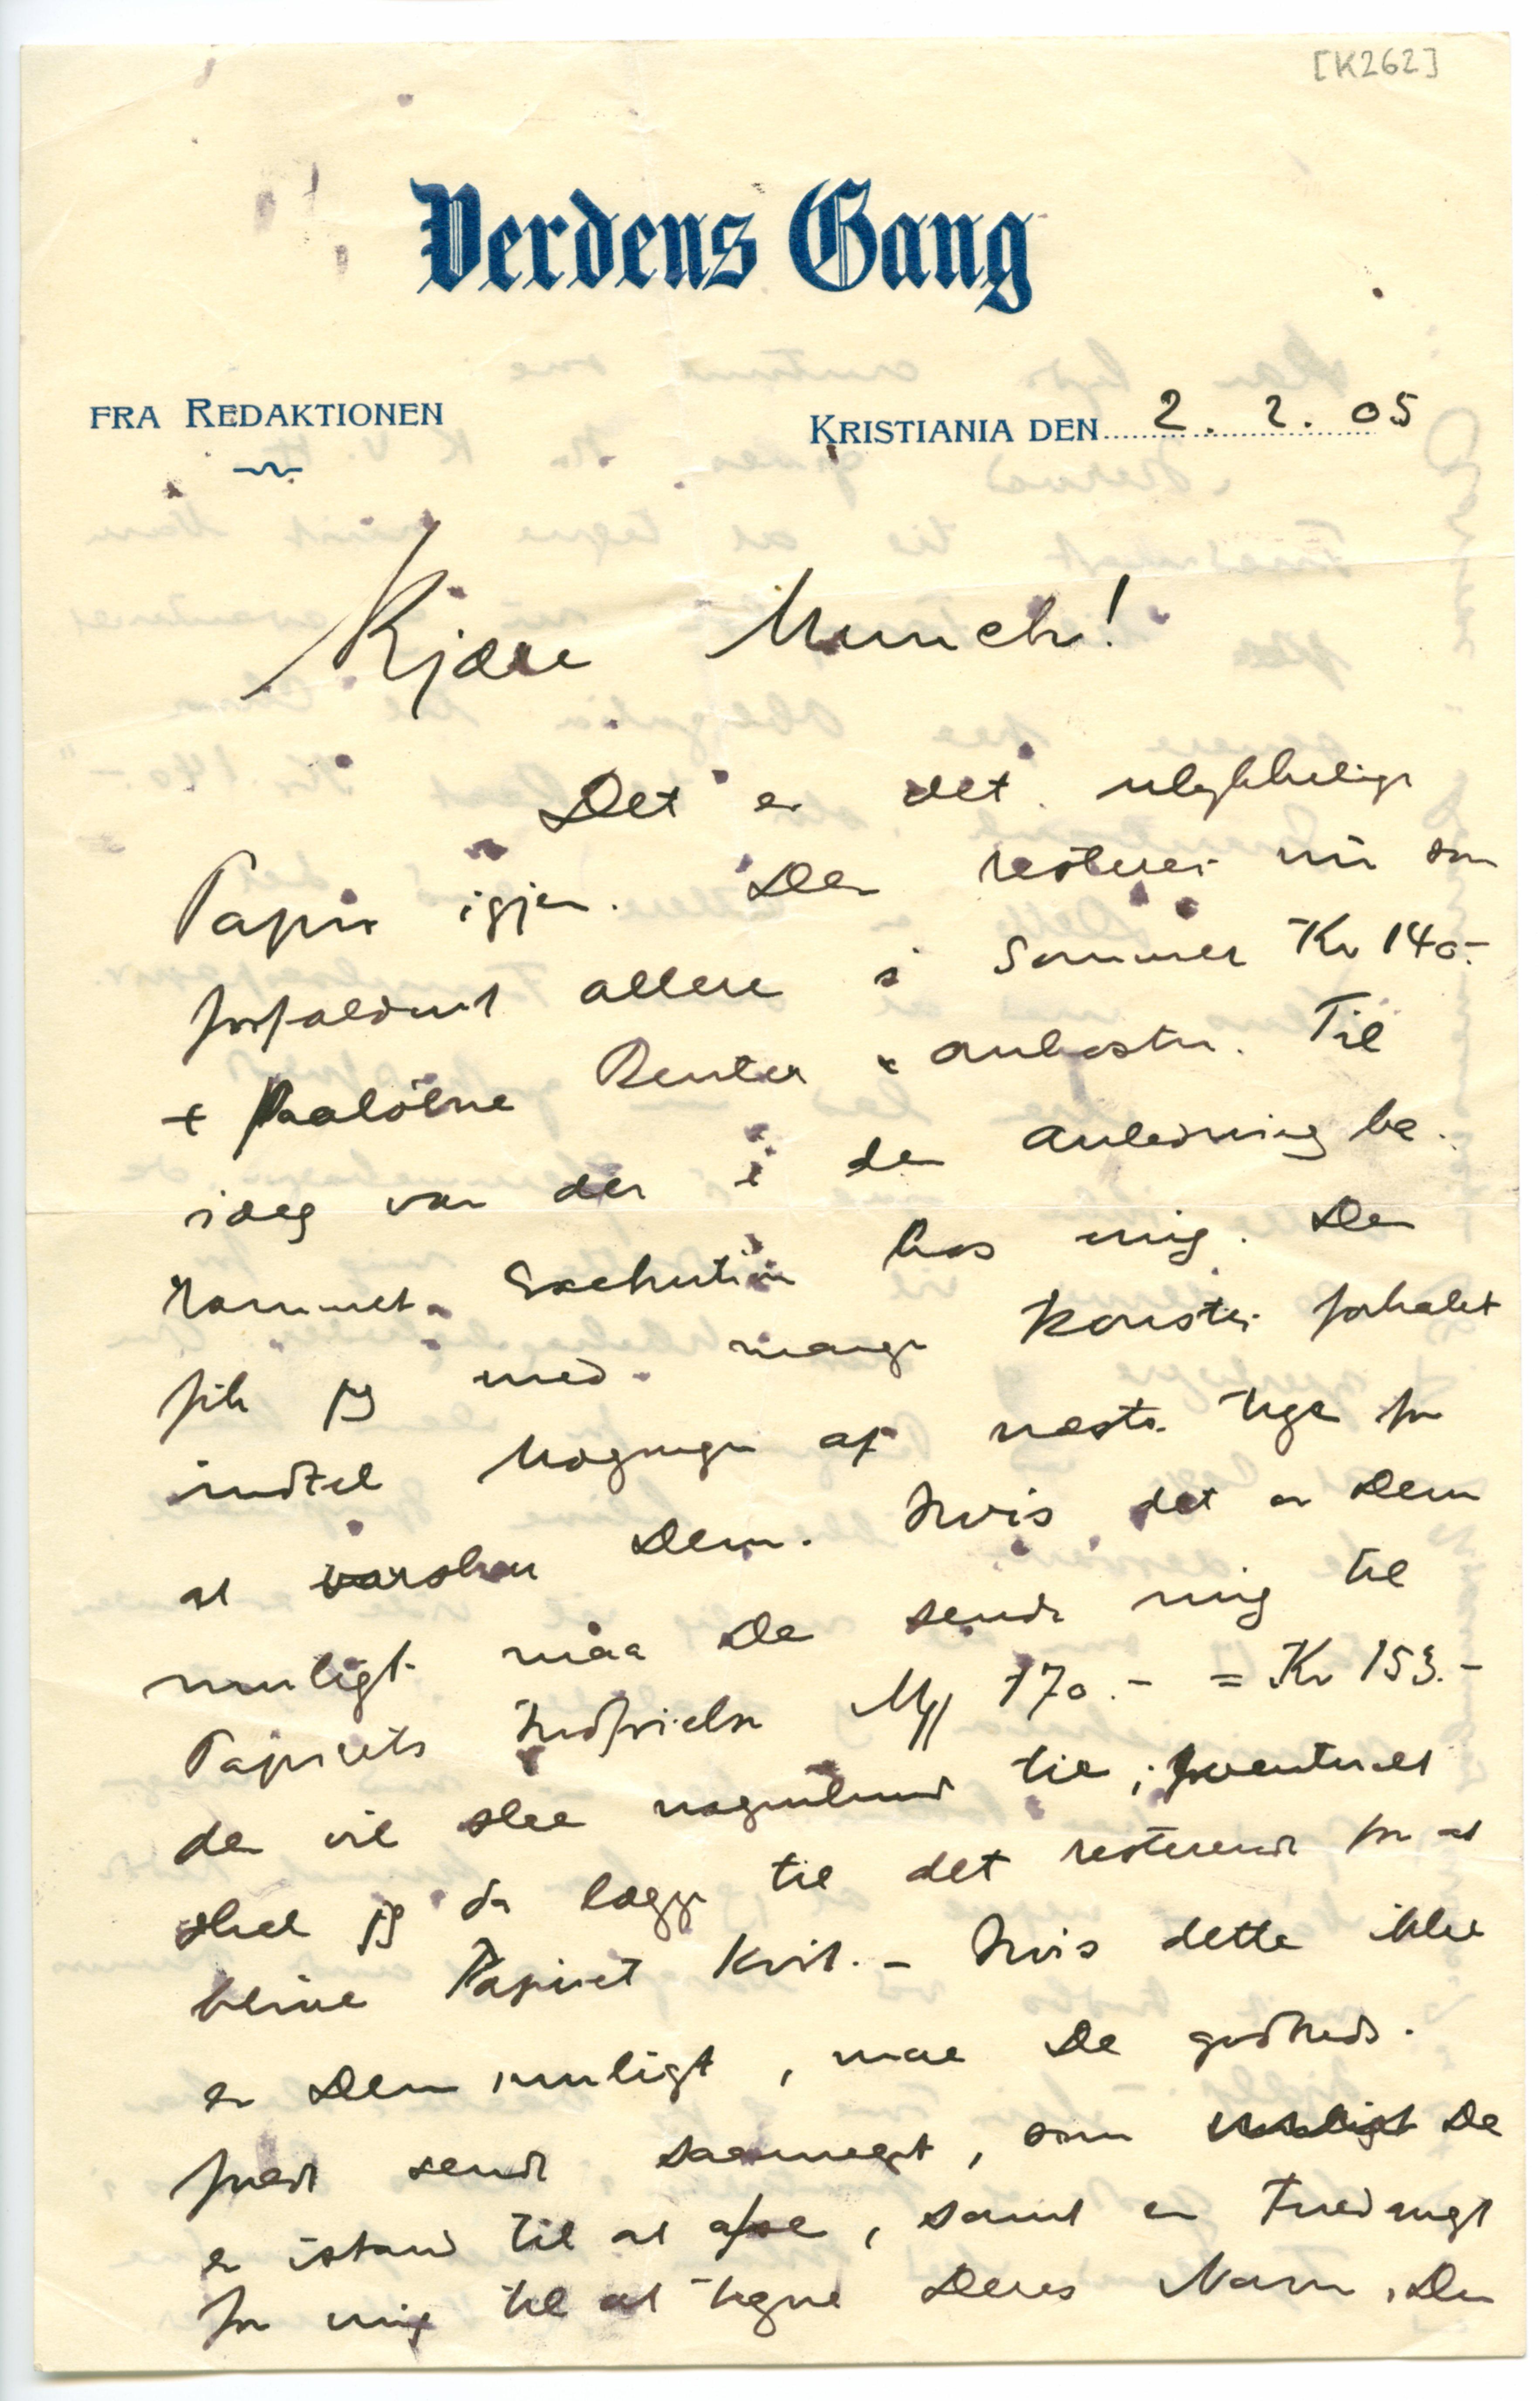 [K262]
Verdens Gang
FRA REDAKTIONEN
KRISTIANIA DEN 2. 2. 05
Kjære Munch!
Det er det ulykkelige
Papir igjen. Der resterer nu som
forfaldent allere i Sommer Kr 140.-
+ Paaløbne Renter & omkostn. Til
idag var der i den anledning be-
rammet Exekution hos mig. Den
fik jeg med mange Kunster forhalet
indtil Slutningen af næste Uge for
at varsko Dem. Hvis det er Dem
muligt maa De sende mig til
Papirets Indfrielse Mk 170.- = Kr 153.-
der vil slee nogenlunde til; eventuelt
skal jeg da lægge til det resterende for at
blive Papiret kvit. - Hvis dette ikke
er Dem muligt, maa De godheds-
fuldt sende saameget, som De
er istand til at afse, samt en Fuldmagt
for mig til at tegne Deres Navn. Den